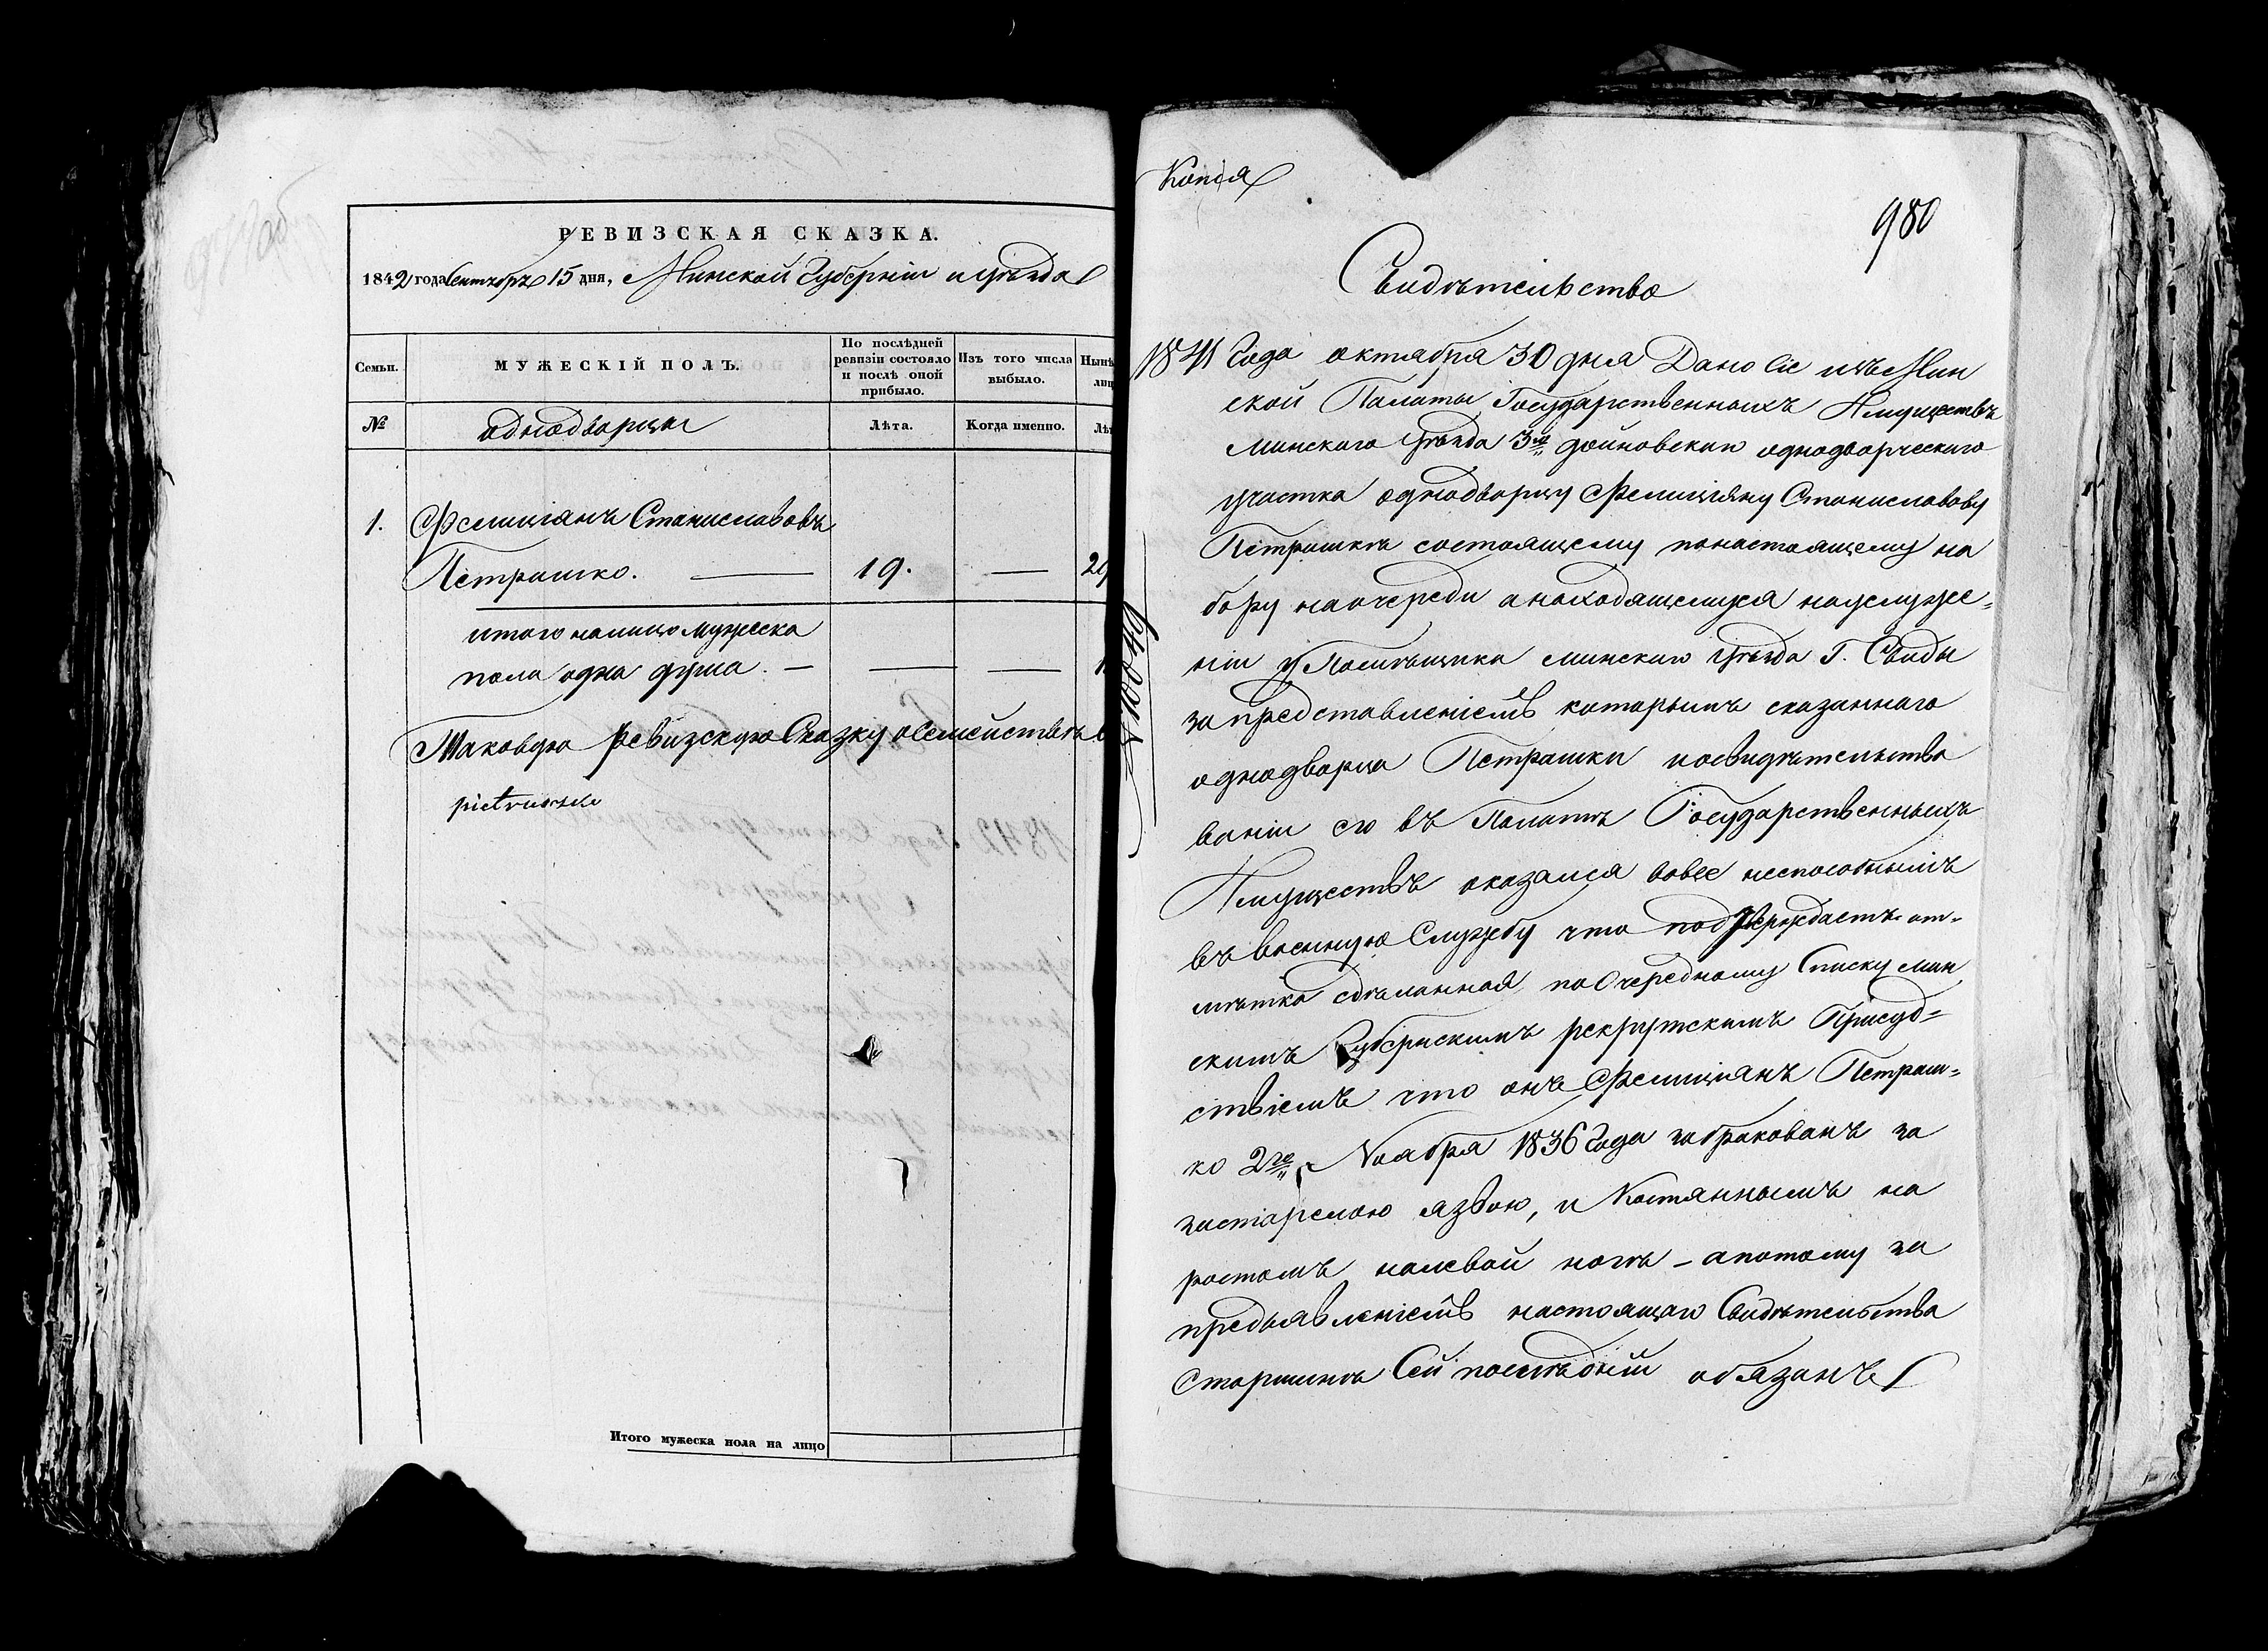 РЕВИЗСКАЯ СКАЗКА.
1842 года Сентября 15 дня, Минской Губерніи и уѣзда
Семьи.
МУЖЕСКІЙ ПОЛЪ.
По послѣдней ревизіи состояло и послѣ оной прибыло.
Изъ того числа выбыло.
Нынѣ
лиц
№
однодворцы
Лѣта.
Когда именно.
Лѣт
1. Фелиціянъ Станиславовъ
Петрашко. — 19. — 29
итого налицо мужеска
пола одна душа. — — — 1
Таковую ревизскую Сказку о Семействѣ
Копія
980
Свидѣтельство
1841 Года октября 30 дня Дано сіе изъ Мин
ской Палаты Государственныхъ Имуществъ
Минского уѣзда 3го Дойновскаго однодворческаго
участка однодворцу Фелиціяну Станиславову
Петрашкѣ состоящему понастоящему на
бору наочереди анаходящемуся науслуже-
ніи у Помѣщика минскаго уѣзда Г. Свиды
запредставленіемъ которымъ сказаннаго
однодворца Петрашки посвидѣтельство
ваніи его въ Палатѣ Государственныхъ
Имуществъ оказался вовсе неспособнымъ
въ военную Службу что подтверждаетъ от-
мѣтка сдѣланная по Очередному Списку мин
скимъ Губернскимъ рекрутскимъ Присуд-
ствіемъ что онъ Фелиціянъ Петраш-
ко 2го Ноября 1836 Года забракованъ за
застарелою язвою, и Костяннымъ на
ростомъ налевой ногѣ — апотому за
предъявленіемъ настоящаго Свидѣтельства
старшинѣ Сей послѣдній обязанъ
№ 10049